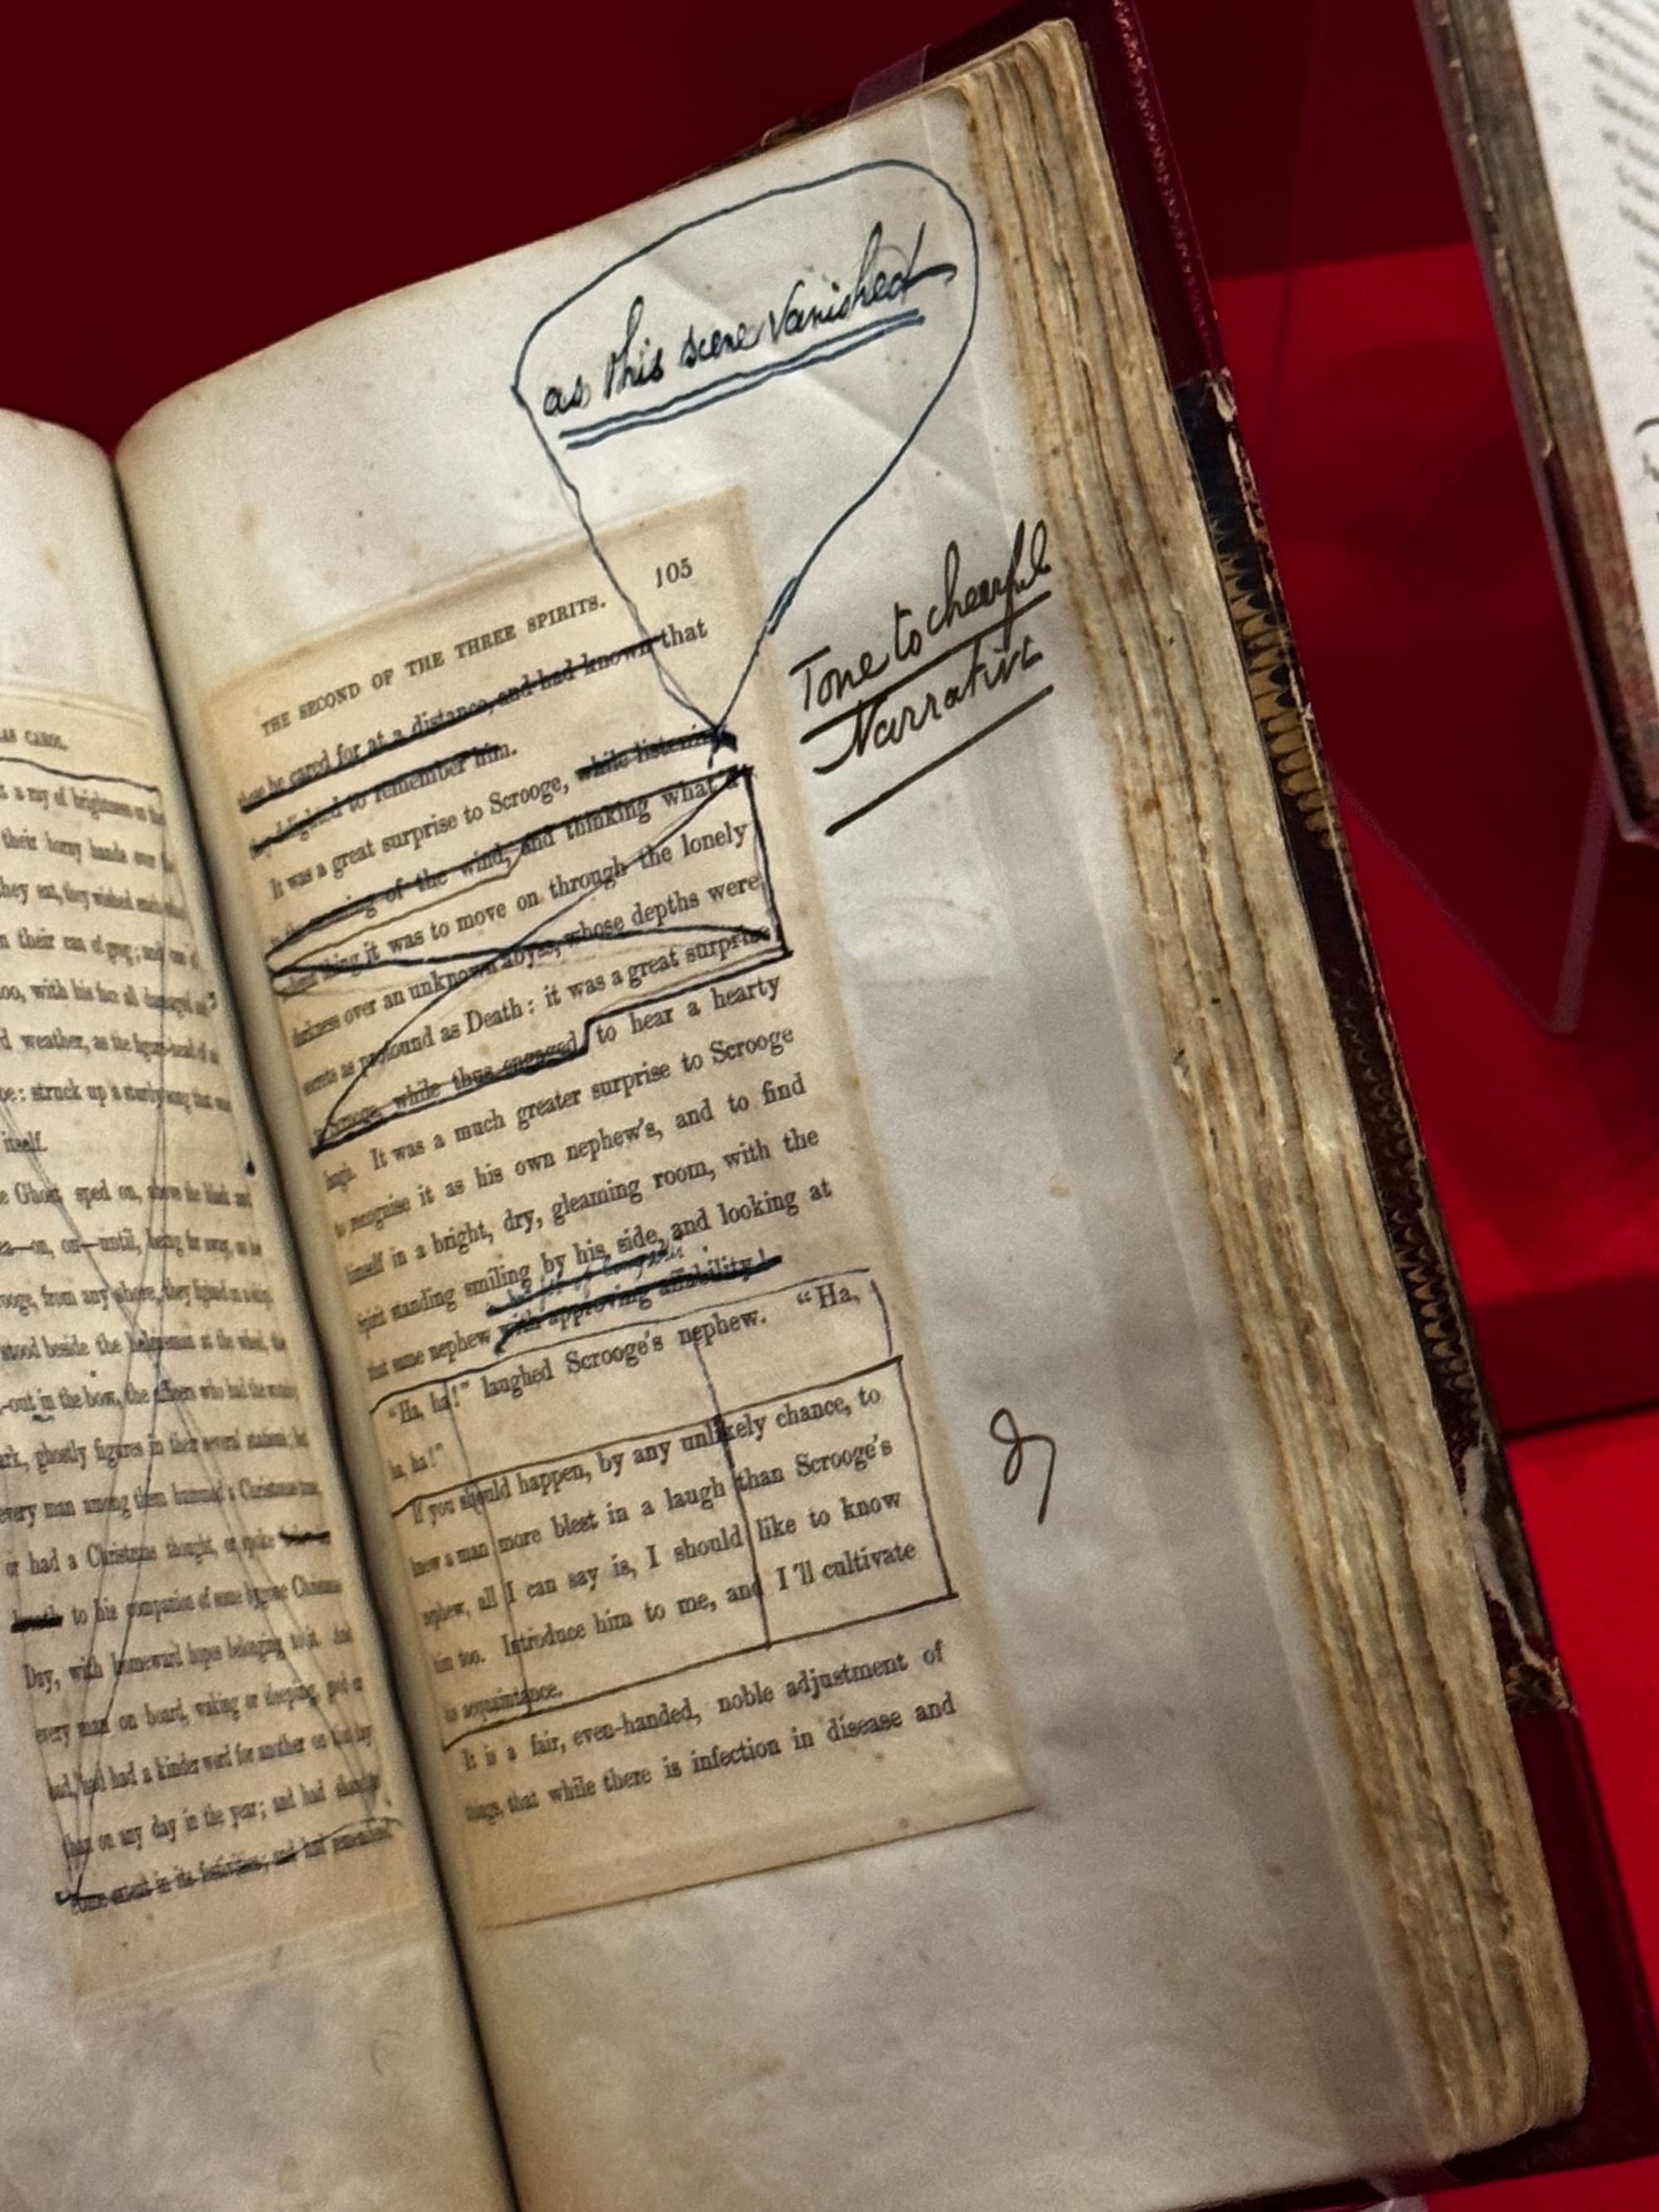 AS CAROL.
a ray of brightness on the
their horny hands over
they eat, they wished each
their can of grog; and one of
too, with his face all damaged
weather, as the figure-head of
struck up a sturdy song that was
itself.
Ghost sped on, above the black and
on, on—until, being far away, as he
from any shore, they lighted on a ship.
stood beside the helmsman at the wheel, the
-out in the bow, the officers who had the
ghostly figures in their several stations; but
every man among them hummed a Christmas tune,
or had a Christmas thought, or spoke
breath to his companion of some bygone Christmas
Day, with homeward hopes belonging to it. And
every man on board, waking or sleeping, good or
bad, had had a kinder word for another on that day
than on any day in the year; and had shared
some extent in its festivities; and had remembered
as this scene vanished
THE SECOND OF THE THREE SPIRITS. 105
those he cared for at a distance, and had known that
they delighted to remember him.
It was a great surprise to Scrooge, while listening
to the moaning of the wind, and thinking what a
solemn thing it was to move on through the lonely
darkness over an unknown abyss, whose depths were
secrets as profound as Death: it was a great surprise
to Scrooge, while thus engaged, to hear a hearty
laugh. It was a much greater surprise to Scrooge
to recognise it as his own nephew's, and to find
himself in a bright, dry, gleaming room, with the
Spirit standing smiling by his side, and looking at
that same nephew with approving affability!
"Ha, ha!" laughed Scrooge's nephew. "Ha,
ha, ha!"
If you should happen, by any unlikely chance, to
know a man more blest in a laugh than Scrooge's
nephew, all I can say is, I should like to know
him too. Introduce him to me, and I'll cultivate
his acquaintance.
It is a fair, even-handed, noble adjustment of
things, that while there is infection in disease and
Tone to cheerful
Narrative